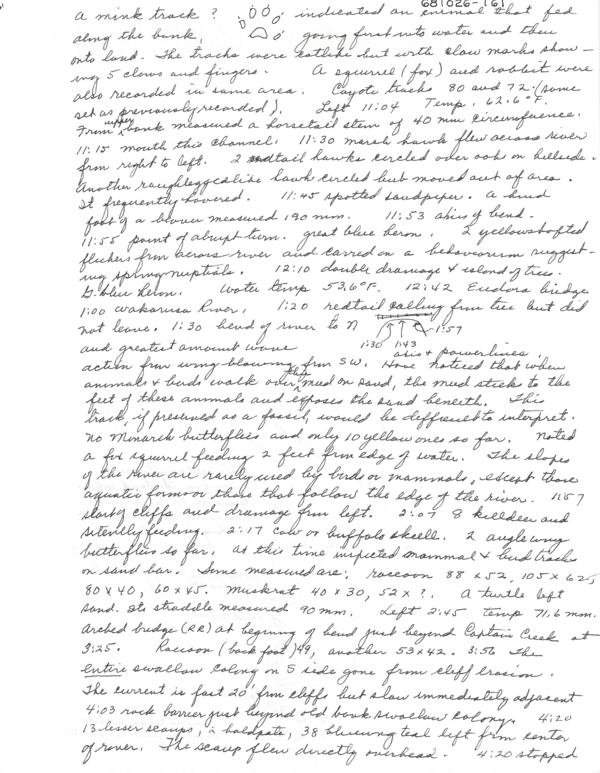 681026-161
a mink track? indicated an animal that fed
along the bank, going first into water and then
onto land. The tracks were catlike but with claw marks show-
ing 5 claws and fingers. A squirrel (fox) and rabbit were
also recorded in same area. Coyote tracks 80 and 72 (same
set as previously recorded). Left 11:04 Temp. 62.6°F.
From upper bank measured a horsetail stem of 40 mm circumference.
11:15 mouth this channel. 11:30 marsh hawk flew across river
from right to left. 2 redtail hawks circled over oak on hillside.
Another roughlegged like hawk circled but moved out of area.
It frequently hovered. 11:45 spotted sandpiper. A hind
foot of a measured 190 mm. 11:53 of bend.
11:55 point of abrupt turn. great blue heron. 2 yellowshafted
flickers from across river and carried on a behaviorism suggest-
ing spring nuptials. 12:10 double drainage & island of trees.
G. blue heron. Water temp 53.6°F. 12:42 Eudora bridge
1:00 Wakarusa River. 1:20 redtail calling from tree but did
not leave. 1:30 bend of river to N 1:57
1:30 1:43
and greatest amount wave & powerlines.
action from wing blowing from SW. Have noticed that when
animals & birds walk over thin mud on sand, the mud sticks to the
feet of these animals and exposes the sand beneath. This
track, if preserved as a fossil, would be difficult to interpret.
No Monarch butterflies and only 10 yellow ones so far. Noted
a fox squirrel feeding 2 feet from edge of water. The slopes
of the river are rarely used by birds or mammals, except those
aquatic forms or those that follow the edge of the river. 1:57
start of cliffs and drainage from left. 2:07 8 killdeer and
silently feeding. 2:17 cow or buffalo skull. 2 anglewing
butterflies so far. At this time inspected mammal & bird tracks
on sand bar. Some measured are: raccoon 88 x 52, 105 x 62,
80 x 40, 60 x 45. Muskrat 40 x 30, 52 x ?. A turtle left
sand. Its straddle measured 90 mm. Left 2:45 temp 71.6 mm.
Arched bridge (RR) at beginning of bend just beyond Captain Creek at
3:25. Raccoon (back foot) 99, another 53 x 42. 3:56 The
entire swallow colony on S side gone from cliff erosion.
The current is fast 20' from cliffs but slow immediately adjacent
4:03 rock barrier just beyond old bank swallow colony. 4:20
13 lesser scaups, 2 baldpate, 38 bluewing teal left from center
of river. The scaup flew directly overhead. 4:20 stopped